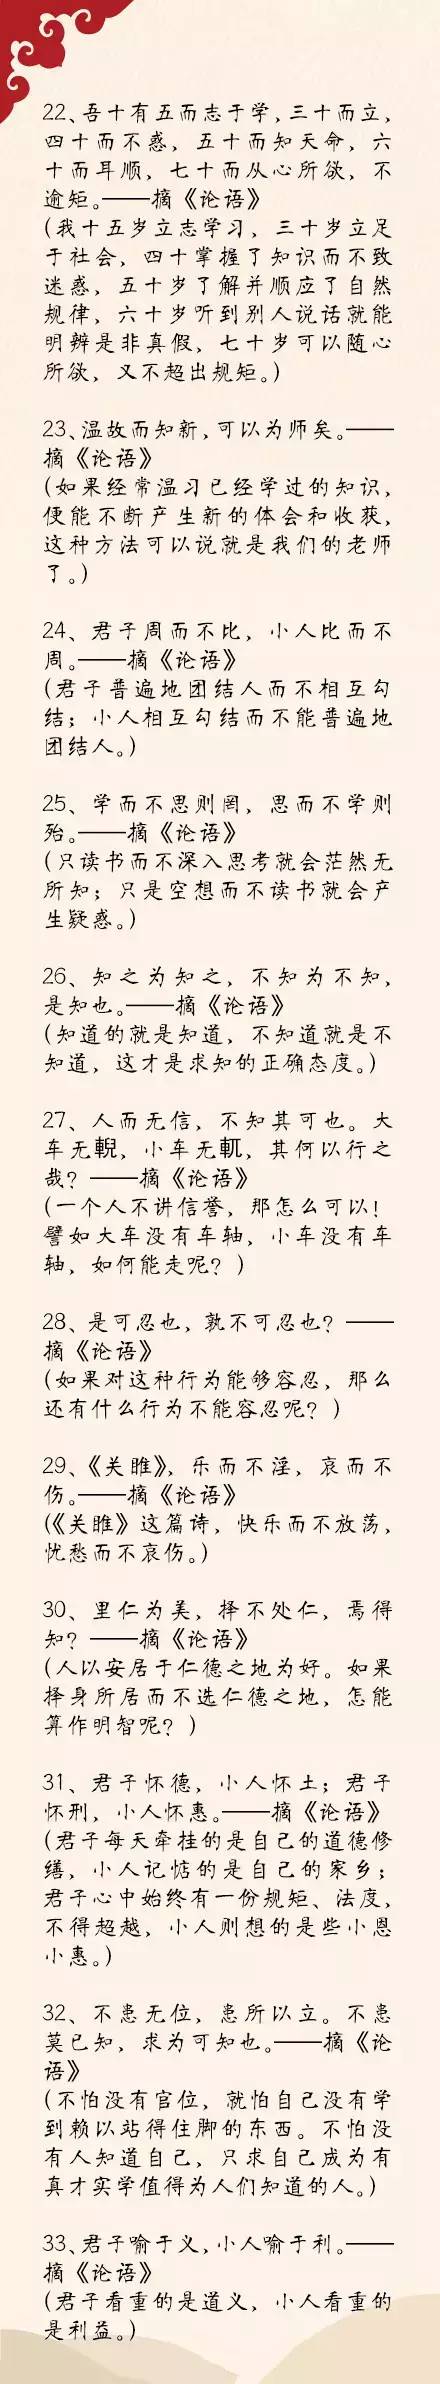 22、吾十有五而志于学,三十而立,
四十而不惑，五十而知天命，六
十而耳顺，七十而从心所欲，不
逾矩。——摘《论语》
(我十五岁立志学习，三十岁立足
于社会，四十掌握了知识而不致
迷惑，五十岁了解并顺应了自然
规律，六十岁听到别人说话就能
明辨是非真假，七十岁可以随心
所欲，又不超出规矩。)
23、温故而知新,可以为师矣。——
摘《论语》
(如果经常温习已经学过的知识,
便能不断产生新的体会和收获,
这种方法可以说就是我们的老师
了。)
24、君子周而不比，小人比而不
周。——摘《论语》
(君子普遍地团结人而不相互勾
结；小人相互勾结而不能普遍地
团结人。)
25、学而不思则罔，思而不学则
殆。——摘《论语》
(只读书而不深入思考就会茫然无
所知；只是空想而不读书就会产
生疑惑。)
26、知之为知之，不知为不知,
是知也。——摘《论语》
(知道的就是知道，不知道就是不
知道，这才是求知的正确态度。)
27、人而无信，不知其可也。大
车无輗，小车无軏，其何以行之
哉？——摘《论语》
(一个人不讲信誉，那怎么可以!
譬如大车没有车轴，小车没有车
轴，如何能走呢？)
28、是可忍也，孰不可忍也？——
摘《论语》
(如果对这种行为能够容忍，那么
还有什么行为不能容忍呢？)
29、《关雎》，乐而不淫，哀而不
伤。——摘《论语》
(《关雎》这篇诗，快乐而不放荡,
忧愁而不哀伤。)
30、里仁为美，择不处仁，焉得
知？——摘《论语》
(人以安居于仁德之地为好。如果
择身所居而不选仁德之地，怎能
算作明智呢？)
31、君子怀德，小人怀土；君子
怀刑，小人怀惠。——摘《论语》
(君子每天牵挂的是自己的道德修
缮，小人记惦的是自己的家乡；
君子心中始终有一份规矩、法度,
不得超越，小人则想的是些小恩
小惠。)
32、不患无位，患所以立。不患
莫已知，求为可知也。——摘《论
语》
(不怕没有官位，就怕自己没有学
到赖以站得住脚的东西。不怕没
有人知道自己，只求自己成为有
真才实学值得为人们知道的人。)
33、君子喻于义,小人喻于利。——
摘《论语》
(君子看重的是道义，小人看重的
是利益。)